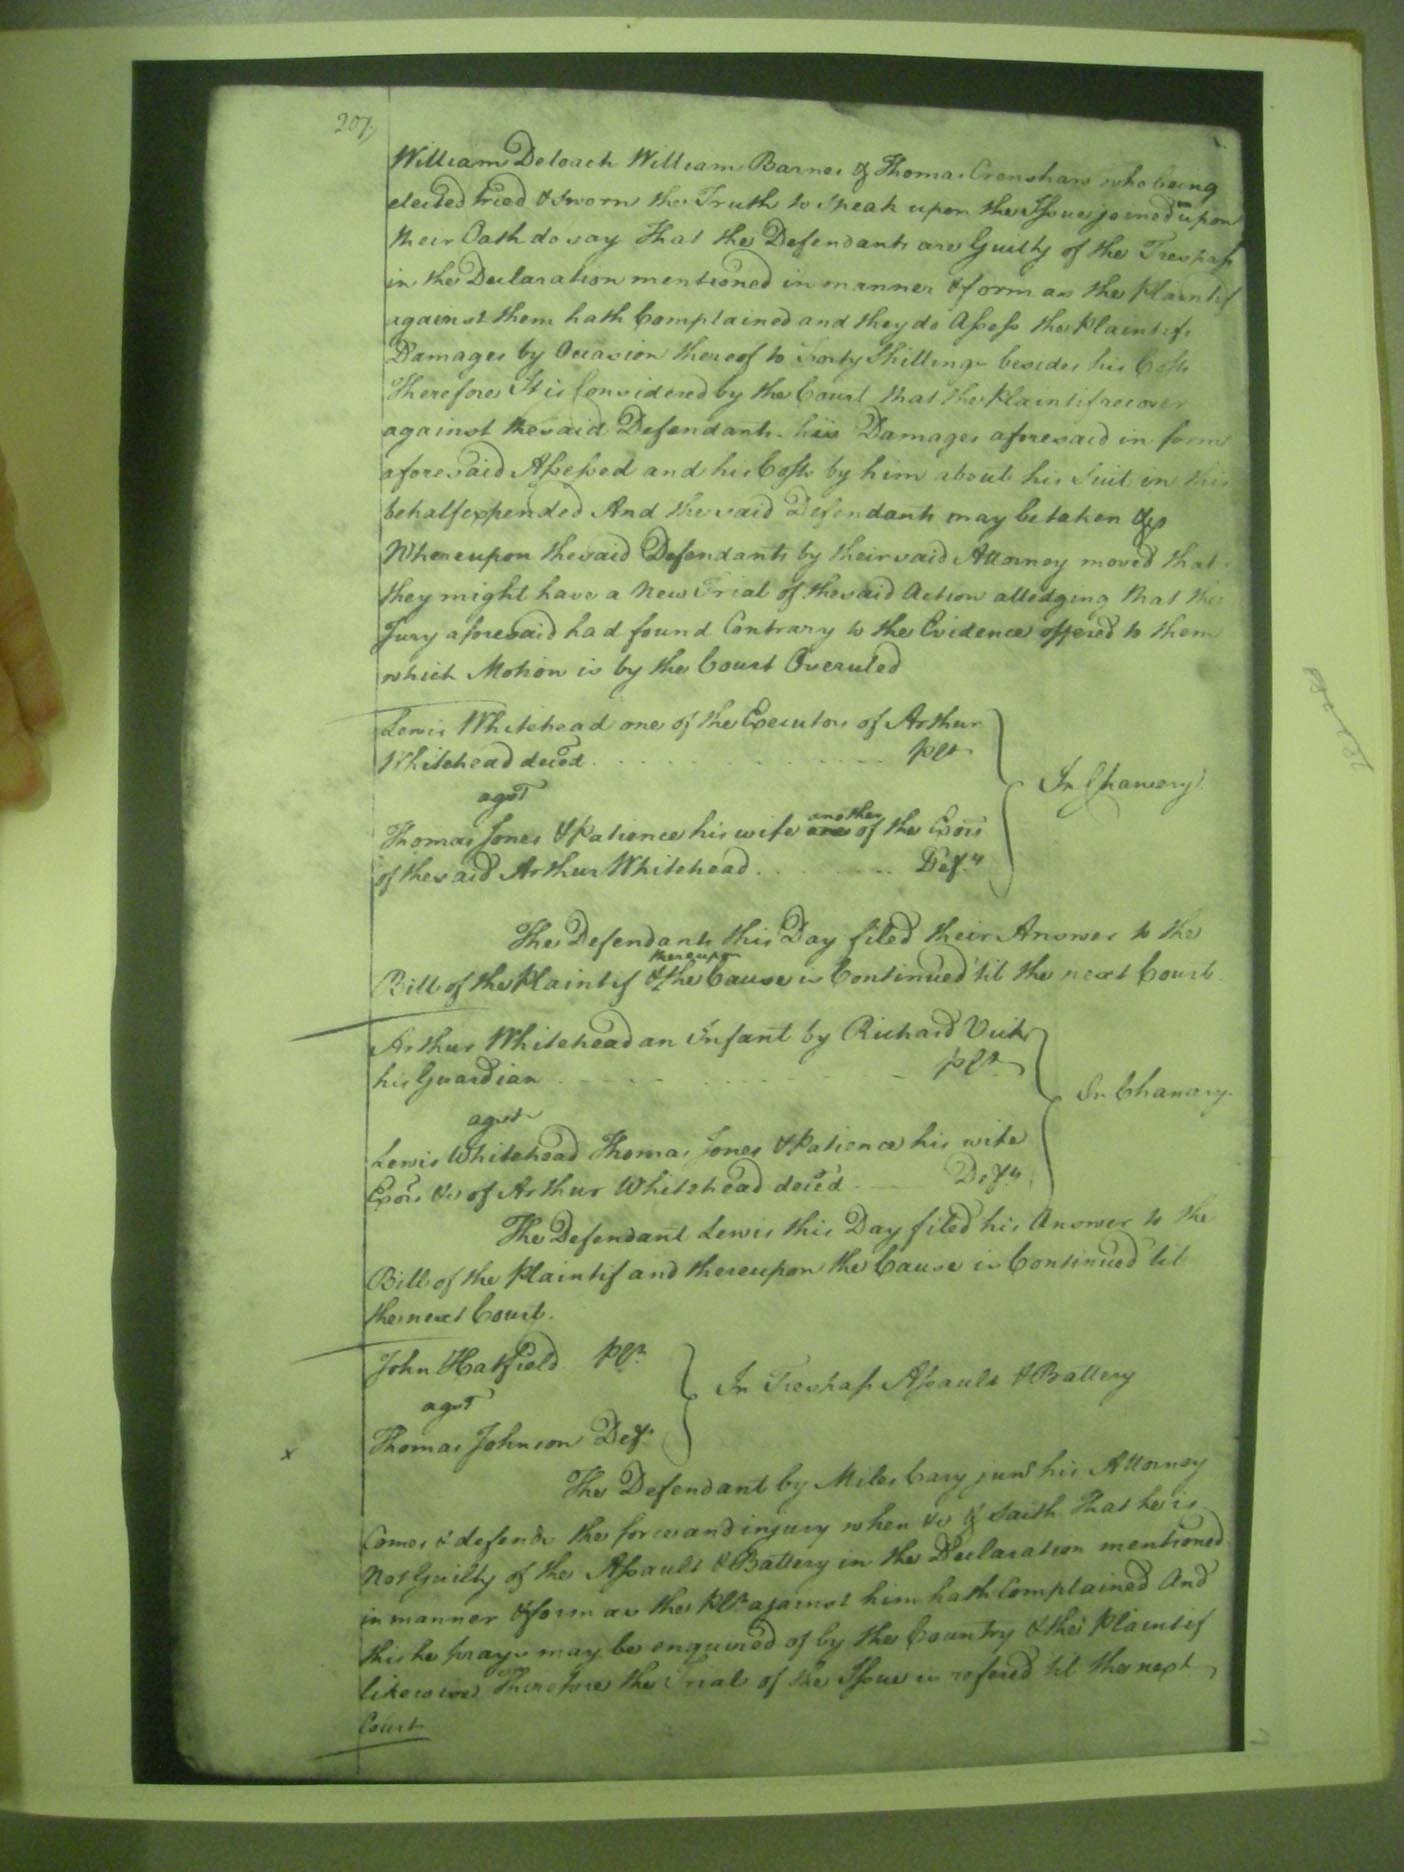 207
William Deloach William Barnes & Thomas Crenshaw who being
elected tried & sworn the Truth to speak upon the Issue joined upon
their Oath do say That the Defendants are Guilty of the Trespass
in the Declaration mentioned in manner & form as the Plaintif
against them hath Complained and they do Assess the Plaintifs
Damages by Occasion thereof to Forty Shillings besides his Costs
Therefore It is Considered by the Court that the Plaintif recover
against the said Defendants his Damages aforesaid in form
aforesaid Assessed and his Costs by him about his Suit in this
behalf expended And the said Defendants may be taken &c
Whereupon the said Defendants by their said Attorney moved that
they might have a New Trial of the said Action alledging that the
Jury aforesaid had found Contrary to the Evidence offered to them
which Motion is by the Court Overuled
Lewis Whitehead one of the Executors of Arthur
Whitehead deced. Plt
In Chancery
agst
Thomas Jones & Patience his wife another of the Exors
of the said Arthur Whitehead Defts
The Defendants this Day filed their Answer to the
Bill of the Plaintif & thereupon the Cause is Continued 'til the next Court
Arthur Whitehead an Infant by Richard Vick
his Guardian Plt
In Chancery
agst
Lewis Whitehead Thomas Jones & Patience his wife
Exors &c of Arthur Whitehead deced Defts
The Defendant Lewis this Day filed his Answer to the
Bill of the Plaintif and thereupon the Cause is Continued 'til
the next Court.
John Hatfield Plt
In Trespass Assault & Battery
agst
x Thomas Johnson Deft
The Defendant by Miles Cary junr his Attorney
Comes & defends the force and injury when &c & saith That he is
Not Guilty of the Assault & Battery in the Declaration mentioned
in manner & form as the Plt against him hath Complained And
this he prays may be enquired of by the Country & the Plaintif
likewise Therefore the Trial of the Issue is refered til the next
Court